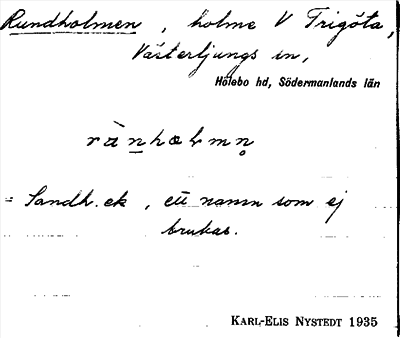 Rundholmen, holme V Trigöta,
Västerljungs sn,
Hölebo hd, Södermanlands län
rànhoḷmn̥
= Sandh. ek, ett namn som ej
brukas.
KARL-ELIS NYSTEDT 1935